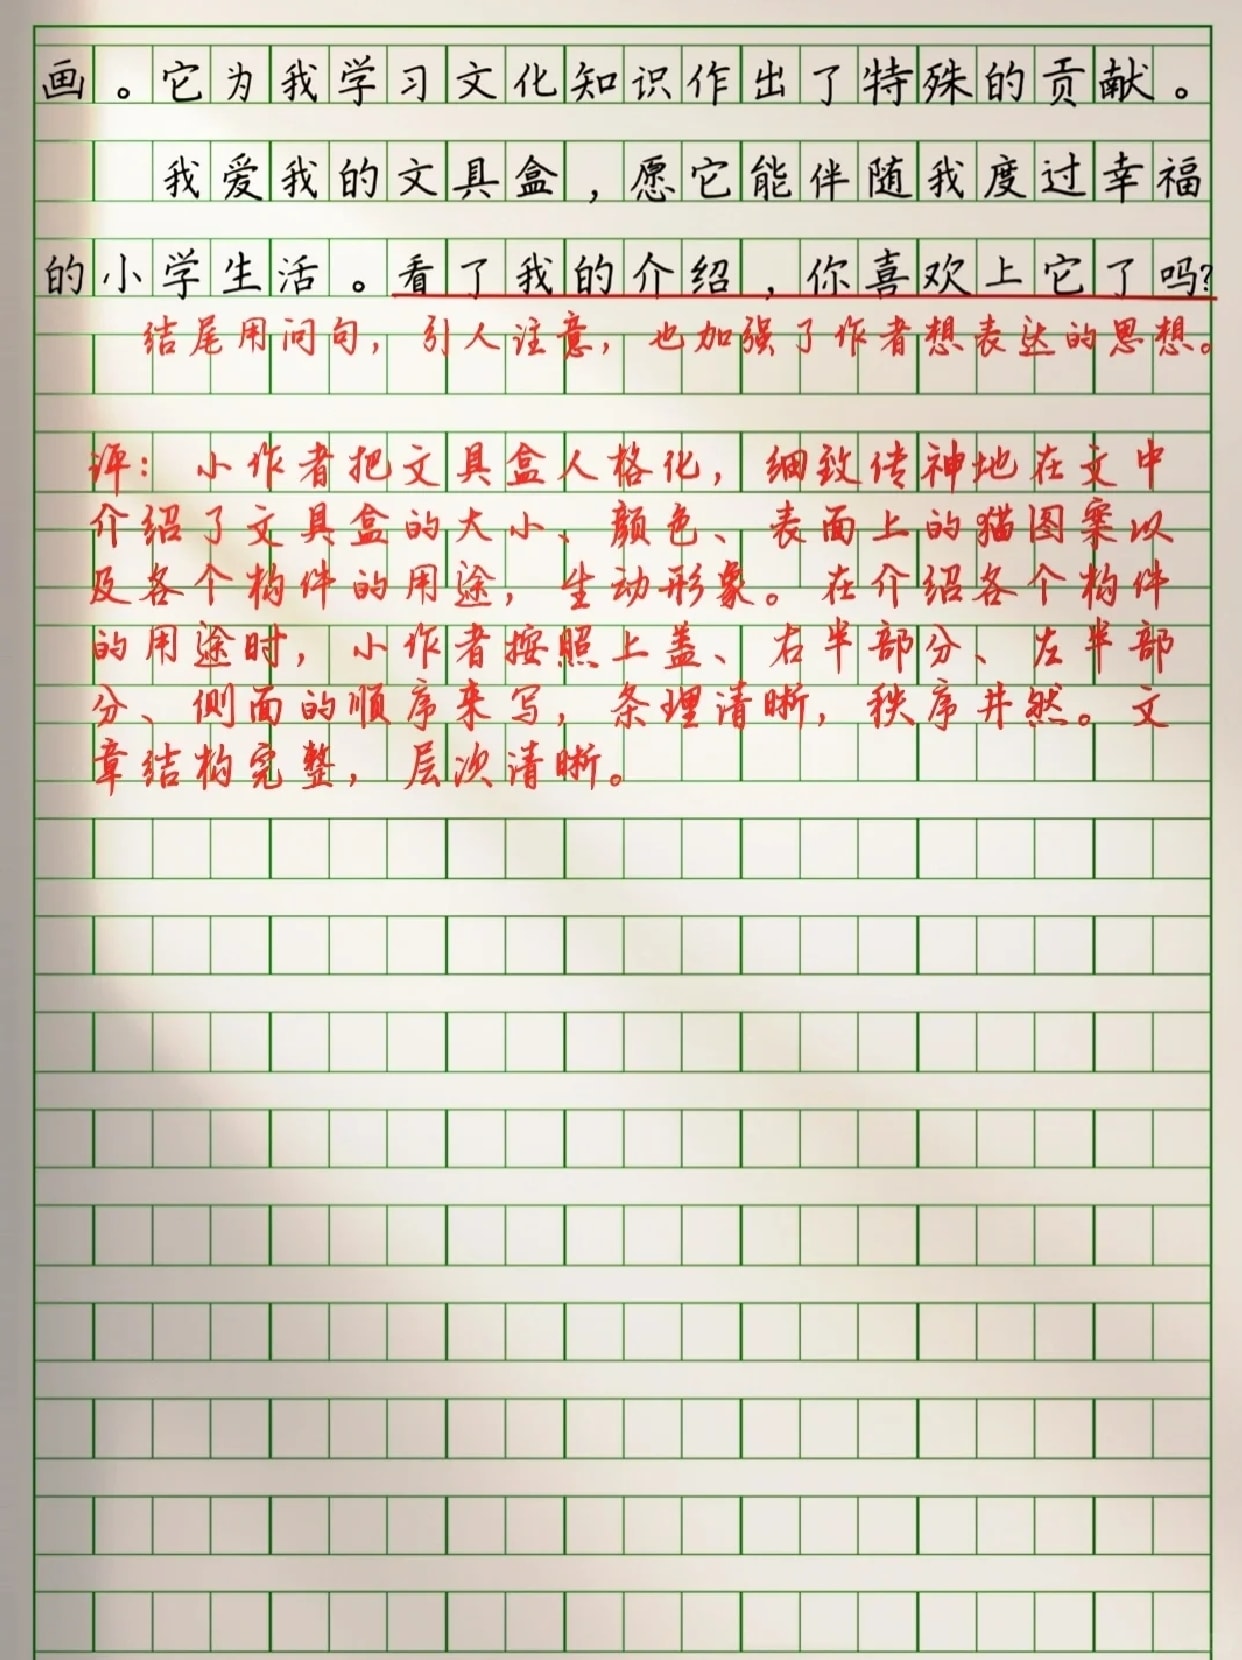 画。它为我学习文化知识作出了特殊的贡献。
我爱我的文具盒，愿它能伴随我度过幸福
的小学生活。看了我的介绍，你喜欢上它了吗?
结尾用问句，引人注意，也加强了作者想表达的思想。
评：小作者把文具盒人格化，细致传神地在文中
介绍了文具盒的大小、颜色、表面上的猫图案以
及各个构件的用途，生动形象。在介绍各个构件
的用途时，小作者按照上盖、右半部分、左半部
分、侧面的顺序来写，条理清晰，秩序井然。文
章结构完整，层次清晰。